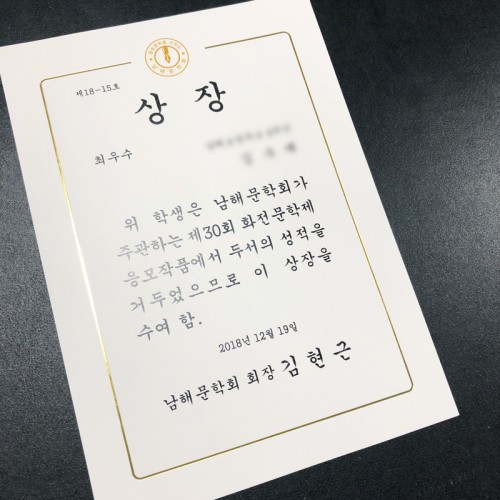 제18-15호
상 장
최우수
위 학생은 남해문학회가
주관하는 제30회 화전문학제
응모작품에서 두서의 성적을
거두었으므로 이 상장을
수여 함.
2018년 12월 19일
남해문학회 회장 김현근